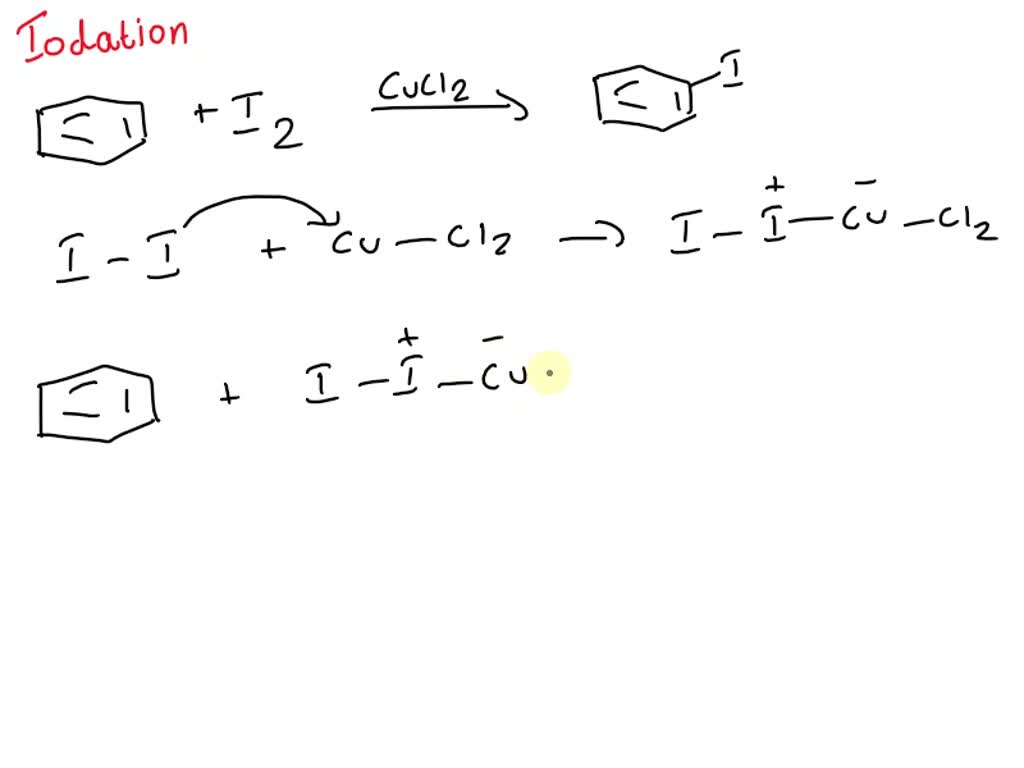 Iodation
+ I2 CuCl2 → I
I - I + Cu - Cl2 → I - I⁺ - Cu⁻ - Cl2
+ I - I⁺ - Cu⁻